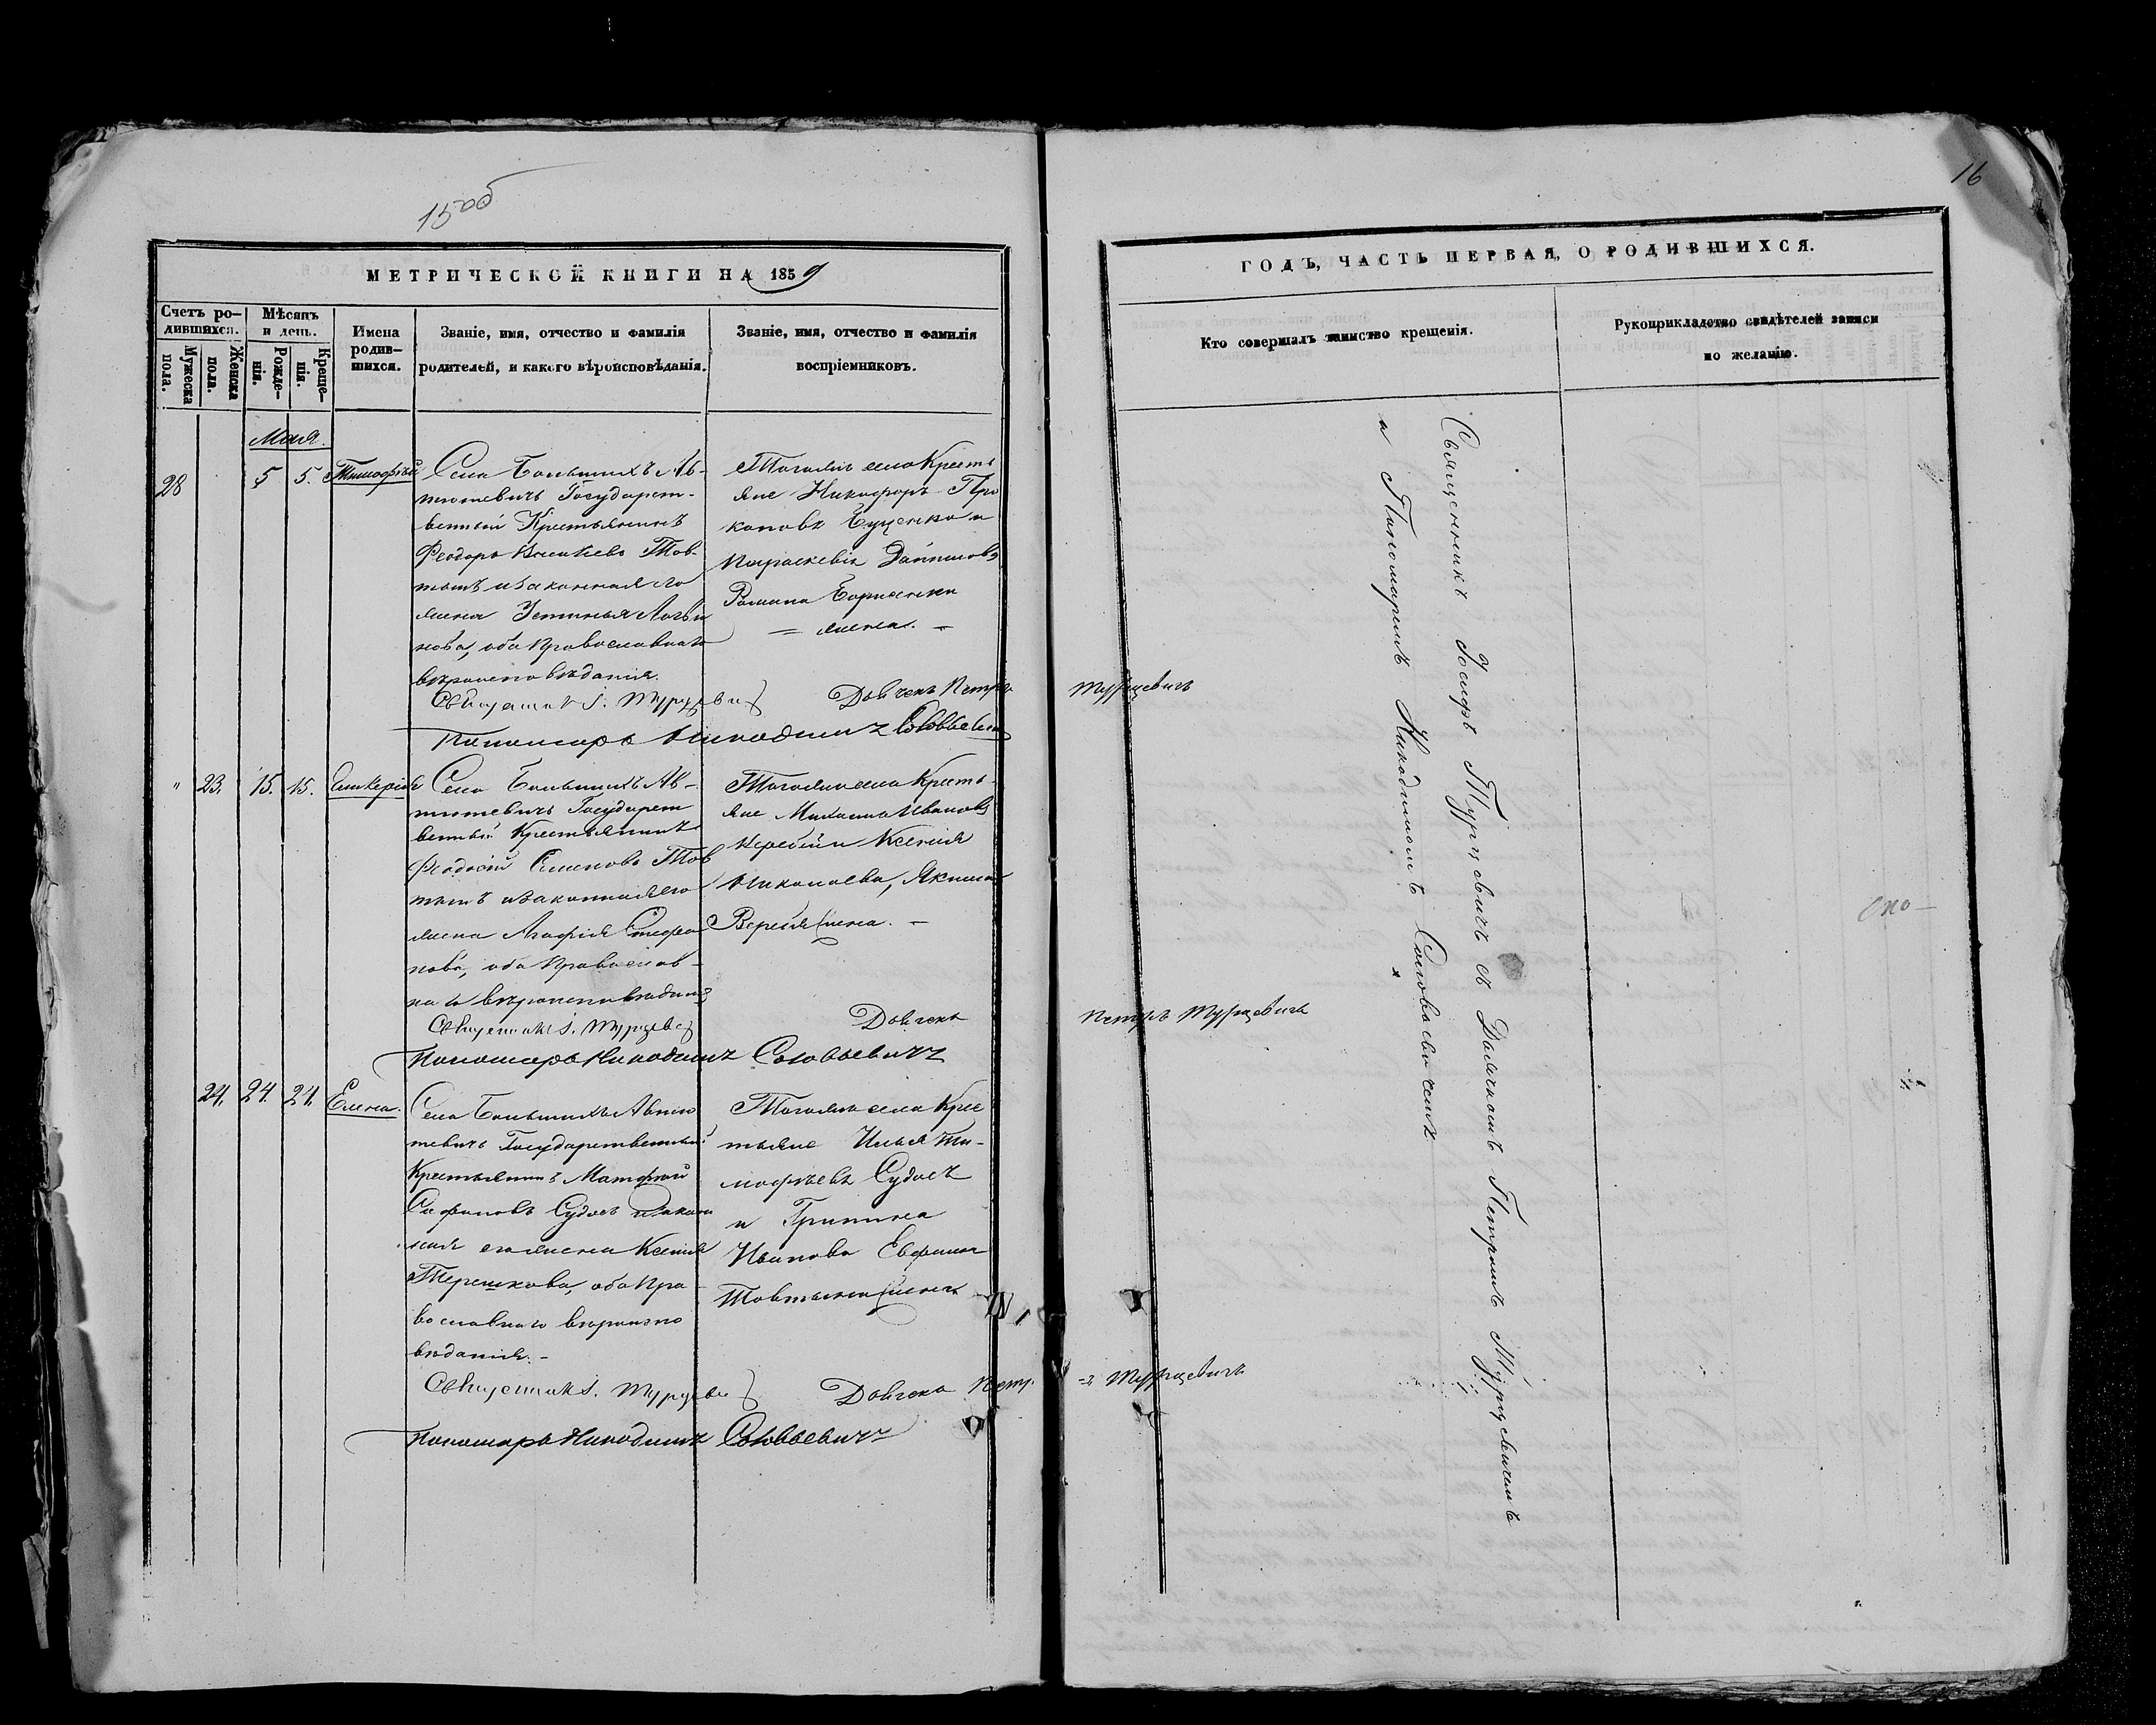 15об
МЕТРИЧЕСКОЙ КНИГИ НА 1859
Счетъ ро-
дившихся.
Мужеска
пола.
Женска
пола.
Мѣсяцъ
и день.
Рожде-
нія.
Креще-
нія.
Имена
родив-
шихся.
Званіе, имя, отчество и фамилія
родителей, и какого вѣроисповѣданія.
Званіе, имя, отчество и фамилія
воспріемниковъ.
Маія.
28
5
5.
Тимофѣй
Села Большихъ Ав-
тютевичъ Государст-
венный Крестьянинъ
Феодоръ Тов-
тынъ и законная его
жена Устинья
нова, оба Православнаго
вѣроисповѣданія.
Тогожъ села Кресть
яне Никифоръ Про
коповъ и
Параскевія
Романа
жена.
Священникъ І. Турцевичъ
Дьячекъ Петръ Турцевичъ
Пономарь Никодимъ Соловьевичъ
23.
15.
15.
Села Большихъ Ав-
тютевичъ Государст
венный Крестьянинъ
Феодосій Семеновъ Тов
тынъ и законная его
жена Агафія Стефа
нова, оба Православ-
наго вѣроисповѣданія
Тогожъ села Кресть-
яне Михаилъ Ивановъ
и Ксенія
Николаева, Якима
жена.
Священникъ І. Турцевичъ
Дьячекъ Петръ Турцевичъ
Пономарь Никодимъ Соловьевичъ
24.
24.
24.
Елена.
Села Большихъ Автю
тевичъ Государственный
Крестьянинъ Матфей
Сафоновъ Судасъ и закон
ная его жена Ксенія
Терешкова, оба Пра
вославнаго вѣроиспо
вѣданія.-
Тогожъ села Крес
тьяне Илья Ти-
мофѣевъ Судасъ
и Грипина
Иванова Ефима
Товтына жена
Священникъ І. Турцевичъ
Дьячекъ Петръ Турцевичъ
Пономарь Никодимъ Соловьевичъ
16
ГОДЪ, ЧАСТЬ ПЕРВАЯ, О РОДИВШИХСЯ.
Кто совершалъ таинство крещенія.
Рукоприкладство свидѣтелей записи
по желанію.
Священникъ Іосифъ Турцевичъ съ Дьячкомъ Петромъ Турцевичемъ
и Пономаремъ Никодимомъ Соловьевичемъ